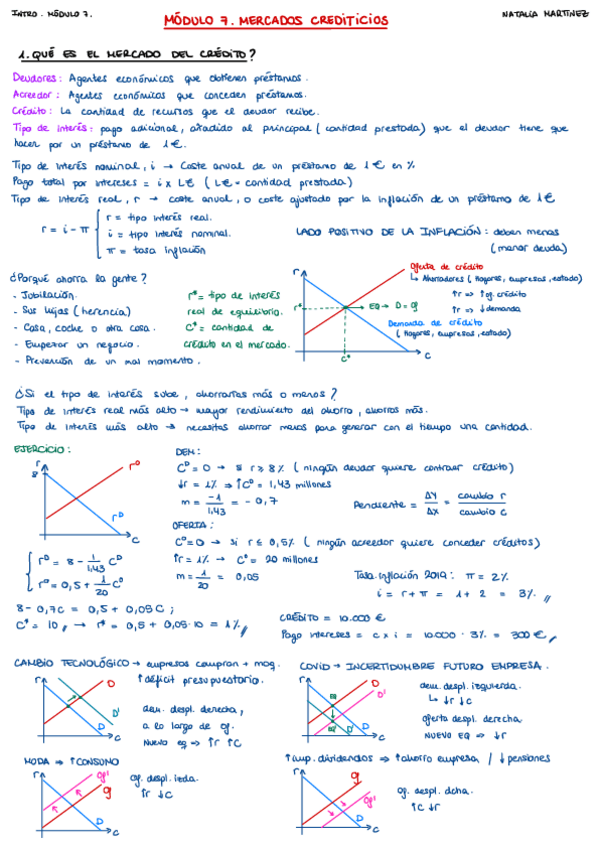 INTRO. MÓDULO 7.
MÓDULO 7. MERCADOS CREDITICIOS
NATALIA MARTÍNEZ
1. QUÉ ES EL MERCADO DEL CRÉDITO?
Deudores: Agentes económicos que obtienen préstamos.
Acreedor: Agentes económicos que conceden préstamos.
Crédito: La cantidad de recursos que el deudor recibe.
Tipo de interés: pago adicional, añadido al principal (cantidad prestada) que el deudor tiene que
hacer por un préstamo de 1€.
Tipo de interés nominal, i → Coste anual de un préstamo de 1€ en %
Pago total por intereses = i x L€ (L€ = cantidad prestada)
Tipo de interés real, r → coste anual, o coste ajustado por la inflación de un préstamo de 1€
r = i - π
r = tipo interés real.
i = tipo interés nominal.
π = tasa inflación
LADO POSITIVO DE LA INFLACIÓN: deben menos
(menor deuda)
¿Porqué ahorra la gente?
- Jubilación.
- Sus hijas (herencia)
- Casa, coche o otra cosa.
- Empezar un negocio.
- Prevención de un mal momento.
r* = tipo de interés
real de equilibrio.
C* = cantidad de
crédito en el mercado.
r
r*
C*
C
EQ → D = Of
Oferta de crédito
↳ Ahorradores (Hogares, empresas, estado)
↑r => ↑of. crédito
↑r => ↓demanda
Demanda de crédito
(Hogares, empresas, estado)
¿Si el tipo de interés sube, ahorrarías más o menos?
Tipo de interés real más alto → mayor rendimiento del ahorro, ahorras más.
Tipo de interés más alto → necesitas ahorrar menos para generar con el tiempo una cantidad.
EJERCICIO:
r
8
r^O
r^D
C
r^D = 8 - 1/1,43 C^D
r^O = 0,5 + 1/20 C^O
8 - 0,7C = 0,5 + 0,05C;
C* = 10 → r* = 0,5 + 0,05·10 = 1%
DEM:
C^D = 0 → si r ≥ 8% (ningún deudor quiere contraer crédito)
↓r = 1% → ↑C = 1,43 millones
m = -1/1,43 = -0,7
Pendiente = ΔY/ΔX = cambio r/cambio c
OFERTA:
C^O = 0 → si r ≤ 0,5% (ningún acreedor quiere conceder créditos)
↑r = 1% → C^O = 20 millones
m = 1/20 = 0,05
Tasa inflación 2019: π = 2%
i = r + π = 1 + 2 = 3%
CRÉDITO = 10.000 €
Pago intereses = c x i = 10.000 · 3% = 300 €
CAMBIO TECNOLÓGICO → empresas compran + maq.
↑déficit presupuestario.
r
O
D'
D
C
dem. despl. derecha,
a lo largo de of.
NUEVO eq → ↑r ↑C
COVID → INCERTIDUMBRE FUTURO EMPRESA.
r
O
O'
D'
D
C
dem. despl. izquierda.
↳ ↓r ↓c
oferta despl. derecha.
NUEVO EQ → ↓r
MODA → ↑CONSUMO
r
Of'
Of
D
C
of. despl. izda.
↑r ↓C
↑imp. dividendos → ↑ahorro empresa / ↓pensiones
r
Of
Of'
D
C
of. despl. dcha.
↑C ↓r